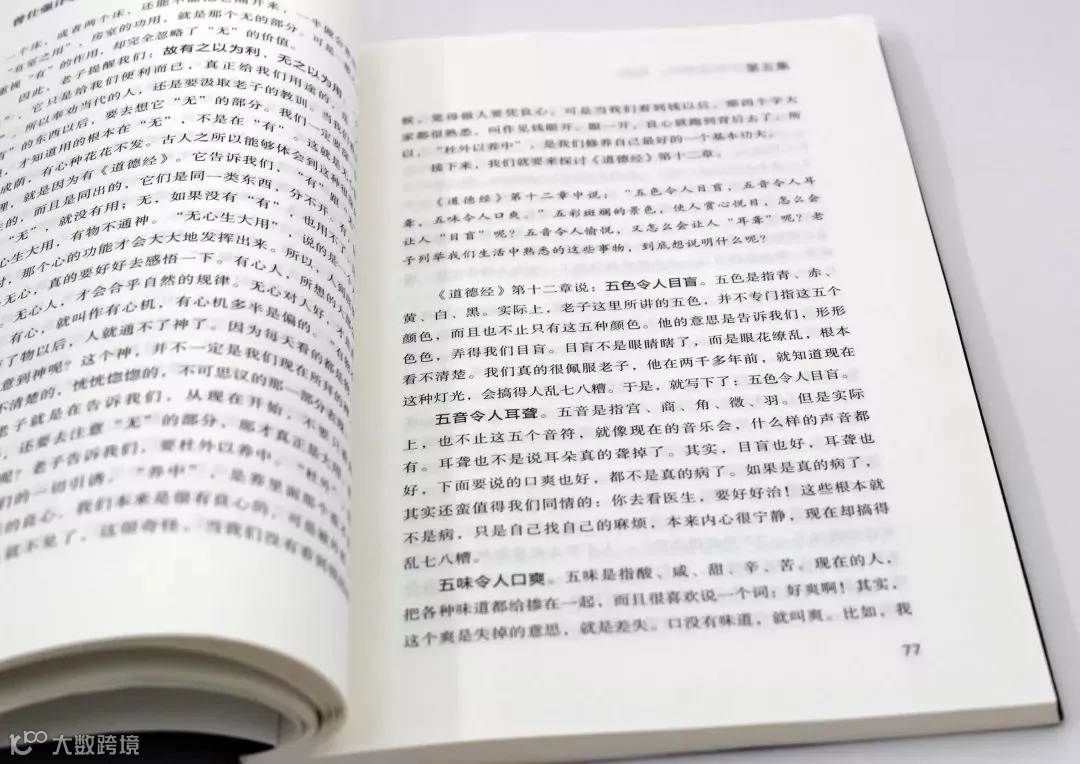 一个床，或者两个床，还能不能把它隔开来，一半做
"有室之用"，房室的功用，就是那个无的部分。可是
重视"有"的作用，却完全忽略了"无"的价值。
因此，老子提醒我们：故有之以为利，无之以为用。
它只是给我们便利而已，真正给我们用途的，
所以奉劝当代的人，还是要汲取老子的教训。当我们
的东西以后，要去想它"无"的部分。我们一定要
才知道用的根本在"无"，不是在"有"。这就是
成荫，有心种花花不发。古人之所以能够体会到这种
理，就是因为有《道德经》。它告诉我们，"有"跟
的，而且是同出的，它们是同一类东西，分不开
"无"，就没有用；无，如果没有"有"，也用不了
心生大用，有物不通神。"无心生大用"，说的是
时，那个心的功能才会大大地发挥出来。所以，人
无心，真的要好好去感悟一下。有心人，所想的
无心人，才会合乎自然的规律。无心对人好，
有心，就叫作有心机，有心机多半是偏的。
了物以后，人就通不了神了。因为每天看的都是
意到神呢？这个神，并不一定是我们现在所
不清楚的，恍恍惚惚的，不可思议的那一部分
老子就是在告诉我们，从现在开始，不要
，还要去注意"无"的部分，那才真正是大用
呢？老子告诉我们，要杜外以养中。"杜外"
们的一切引诱。"养中"，是养里面那个
的良心，我们本来是很有良心的，可是
就不见了，这很奇怪，当我们没有看到
第五集
候，觉得做人要凭良心；可是当我们看到钱以后，那四个字大
家都很熟悉，叫作见钱眼开。眼一开，良心就跑到背后去了。所
以，"杜外以养中"，是我们修养自己最好的一个基本功夫。
接下来，我们就要来探讨《道德经》第十二章。
《道德经》第十二章中说："五色令人目盲，五音令人耳
聋，五味令人口爽。"五彩斑斓的景色，使人赏心悦目，怎么会
让人"目盲"呢？五音令人愉悦，又怎么会让人"耳聋"呢？老
子列举我们生活中熟悉的这些事物，到底想说明什么呢？
《道德经》第十二章说：五色令人目盲。五色是指青、赤、
黄、白、黑。实际上，老子这里所讲的五色，并不专门指这五个
颜色，而且也不止只有这五种颜色。他的意思是告诉我们，形形
色色，弄得我们目盲。目盲不是眼睛瞎了，而是眼花缭乱，根本
看不清楚。我们真的很佩服老子，他在两千多年前，就知道现在
这种灯光，会搞得人乱七八糟。于是，就写下了：五色令人目盲。
五音令人耳聋。五音是指宫、商、角、微、羽。但是实际
上，也不止这五个音符，就像现在的音乐会，什么样的声音都
有。耳聋也不是说耳朵真的聋掉了。其实，目盲也好，耳聋也
好，下面要说的口爽也好，都不是真的病了。如果是真的病了，
其实还蛮值得我们同情的：你去看医生，要好好治！这些根本就
不是病，只是自己找自己的麻烦，本来内心很宁静，现在却搞得
乱七八糟。
五味令人口爽。五味是指酸、咸、甜、辛、苦。现在的人，
把各种味道都给掺在一起，而且很喜欢说一个词：好爽啊！其实，
这个爽是失掉的意思，就是差失。口没有味道，就叫爽。比如，我
77
大数跨境